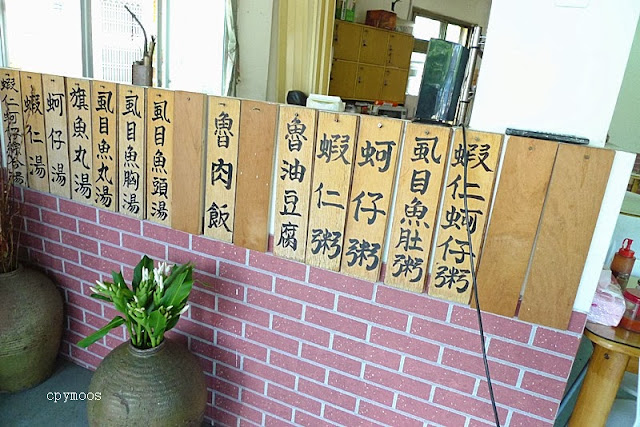 蝦仁蚵仔綜合湯
蝦仁湯
蚵仔湯
旗魚丸湯
虱目魚丸湯
虱目魚胸湯
虱目魚頭湯
魯肉飯
魯油豆腐
蝦仁粥
蚵仔粥
虱目魚肚粥
蝦仁蚵仔粥
cpymoos